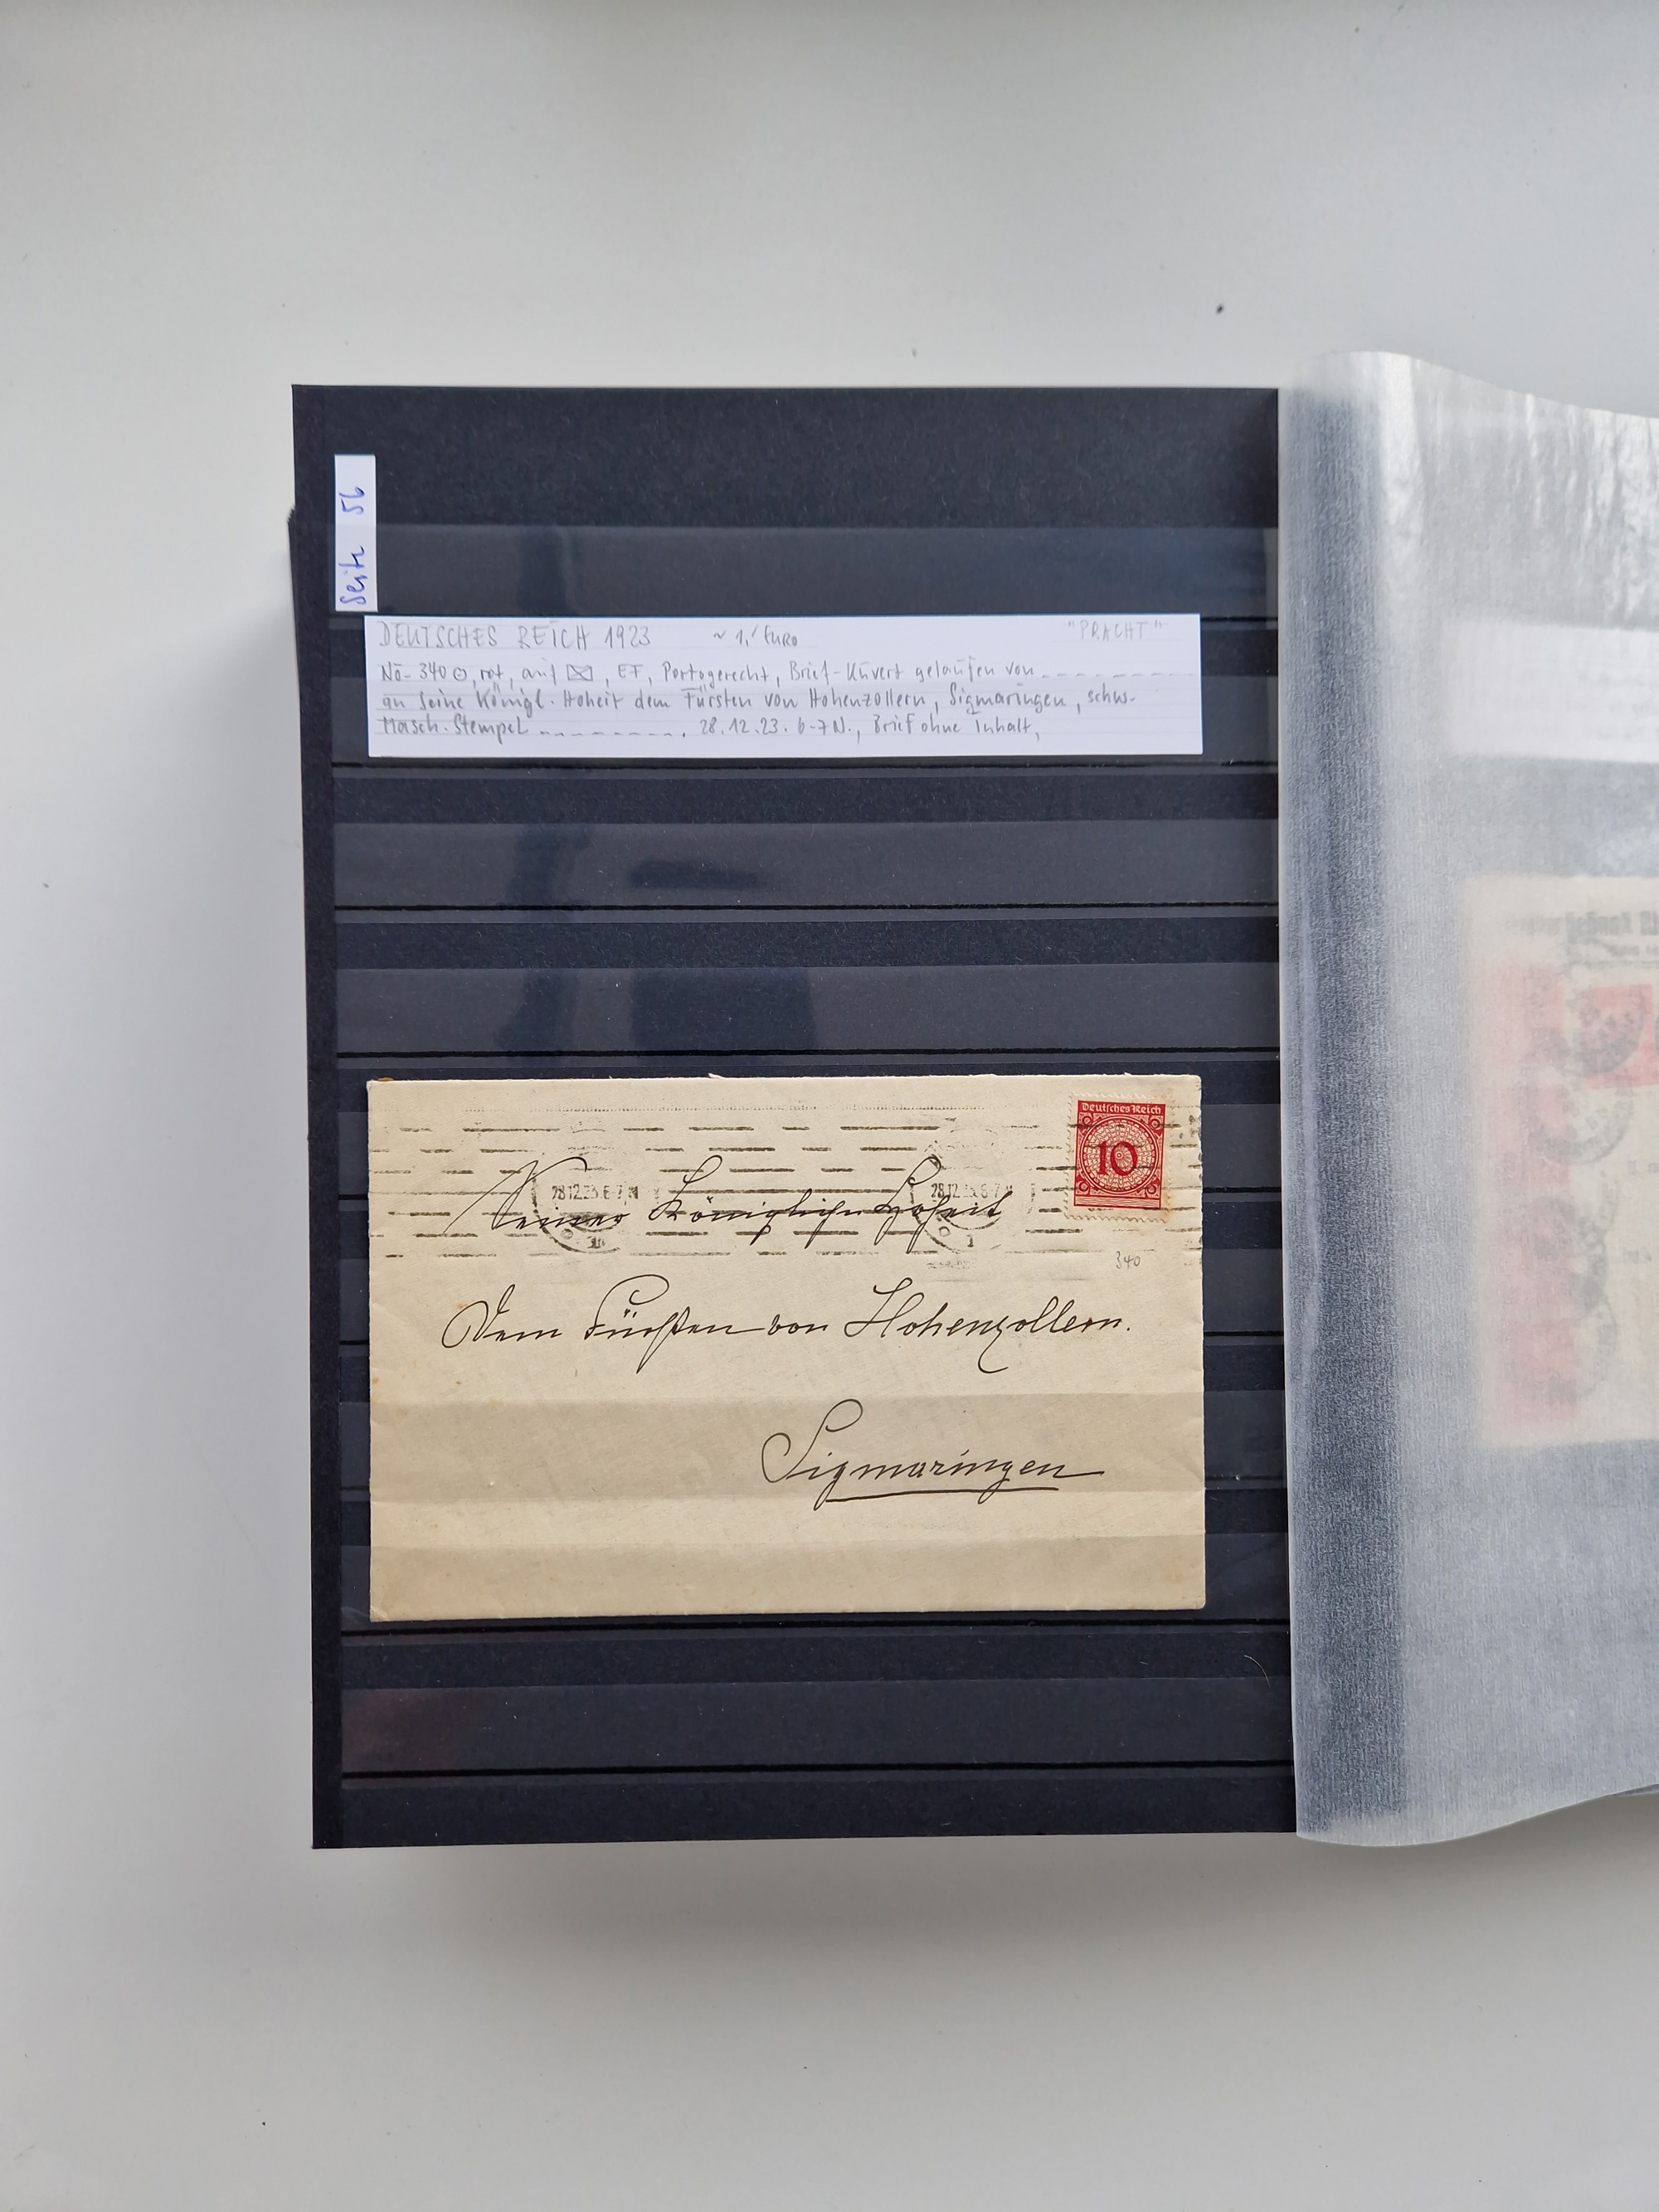 Seite 56
DEUTSCHES REICH 1923 ~ 1,- EURO "PRACHT"
No- 340 ⊙, rot, auf ✉, EF, Portogerecht, Brief-Kuvert gelaufen von
an Seine Königl. Hoheit dem Fürsten von Hohenzollern, Sigmaringen, schw.
Masch. Stempel 28.12.23. 6-7 N., Brief ohne Inhalt,
Deutsches Reich
10
28.12.23.6-7 N
28.12.23.6-7 N
Seiner Königlichen Hoheit
340
Dem Fürsten von Hohenzollern.
Sigmaringen